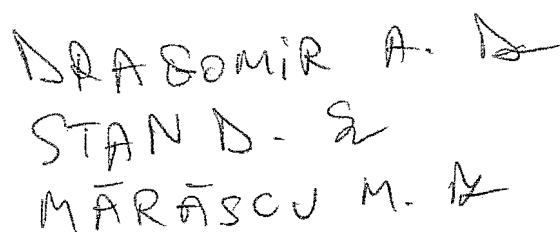 DRAGOMIR A.
STAN D.
MĂRĂSCU M.